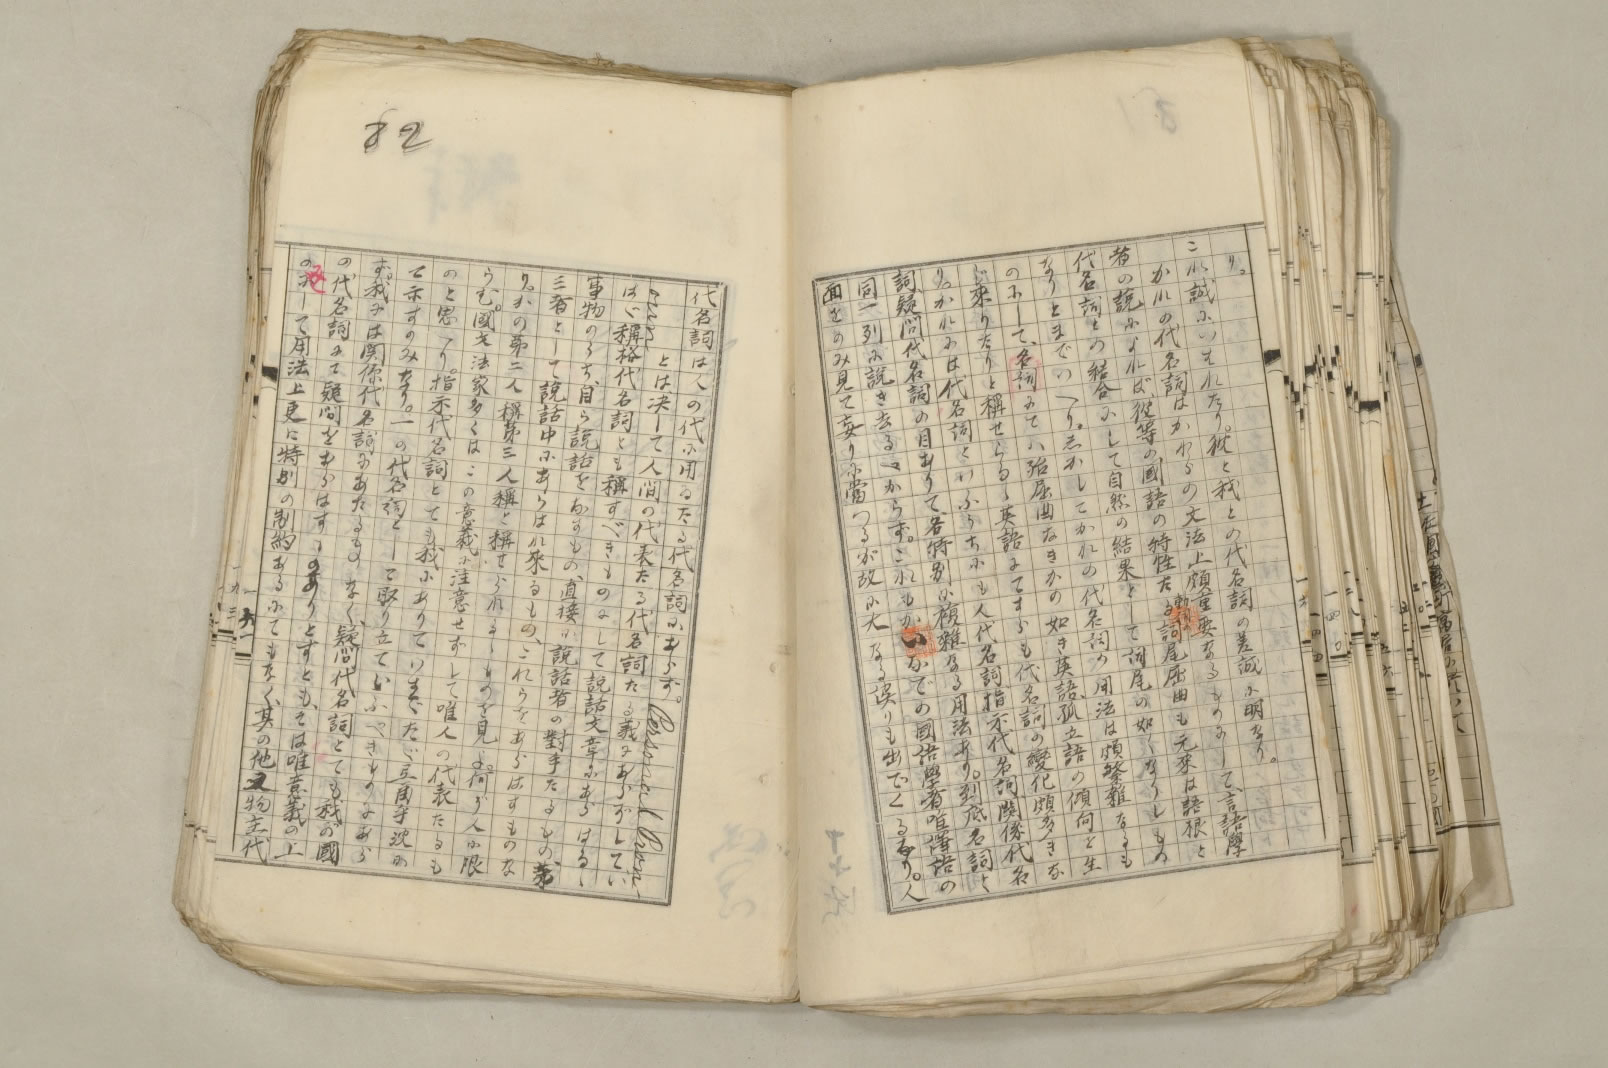 り。
これ誠にいはれたり。彼と我との代名詞の差誠に明なり。
かれの代名詞はかれらの文法上頗重要なるものにして、言語學
者の説によれば、彼等の國語の特性たる詞尾屈曲も元来は語根と
代名詞との結合にして自然の結果として詞尾の如くなりしもの
なりとまでいへり。しかしてかれの代名詞の用法は頗繁雜なるも
のにして、名詞にては殆屈曲なきかの如き英語、孤立語の傾向を生
じ来りたりと稱せらるゝ英語にてすらも代名詞の變化頗多きな
り。かれには代名詞といふうちにも人代名詞指示代名詞関係代名
詞疑問代名詞の目ありて、各特別に複雜なる用法あり。到底名詞と
同一列に説き去るべからず。これをわが國語學者唯譯語の
面をのみ見て妄りに當つるが故に大なる誤りも出でくるなり。人
82
代名詞は人の代に用ゐたる代名詞にあらず。Personal Pronoun
とは決して人間の代表たる代名詞たる義にあらずしてい
はゞ稱格代名詞とも稱すべきものにして説話文章にあらはるゝ
事物のうち、自ら説話をなすもの、直接に説話者の對手たるもの、第
三者として説話中にあらはれ来るもの、これらをあらはすものな
り。かの第二人稱第三人稱と稱せられるゝものを見よ。何ぞ人に限
らむ。國文法家多くはこの意義に注意せずして唯人の代表たるも
のと思へり。指示代名詞とても我にありては
て示すのみなり。一の代名詞として取り立ていふべきものにあら
ず。我には関係代名詞にあたるものなく、疑問代名詞とても我が國
の代名詞にて疑問をあらはすものありとすとも、そは唯意義の上
のみにして用法上更に特別の制約あるにてもなく、其の他 物主代